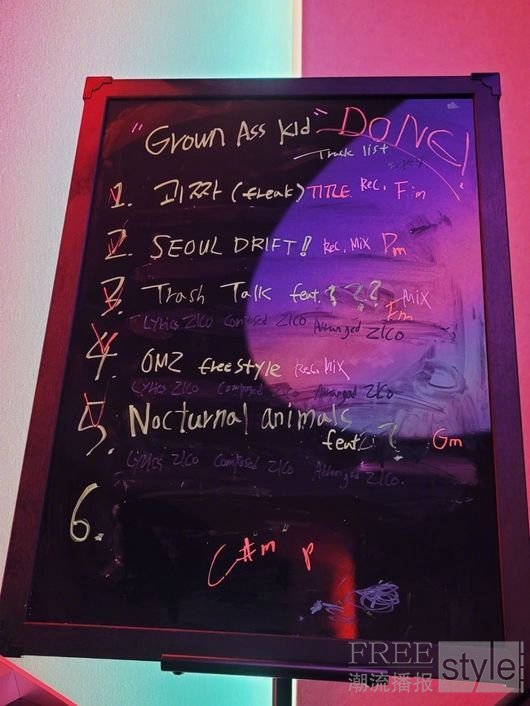 "Grown Ass Kid" DONE!
Track list
1. 괴짜 (freak) TITLE Rec. F#m
2. SEOUL DRIFT! Rec. Mix Dm
3. Trash Talk feat. ??? Mix
Lyrics ZICO Composed ZICO Arranged ZICO Em
4. OMZ freestyle Rec. Mix
Lyrics ZICO Composed ZICO Arranged ZICO
5. Nocturnal animals
feat. ? Gm
Lyrics ZICO Composed ZICO Arranged ZICO.
6.
C#m p
FREE style
潮流播报